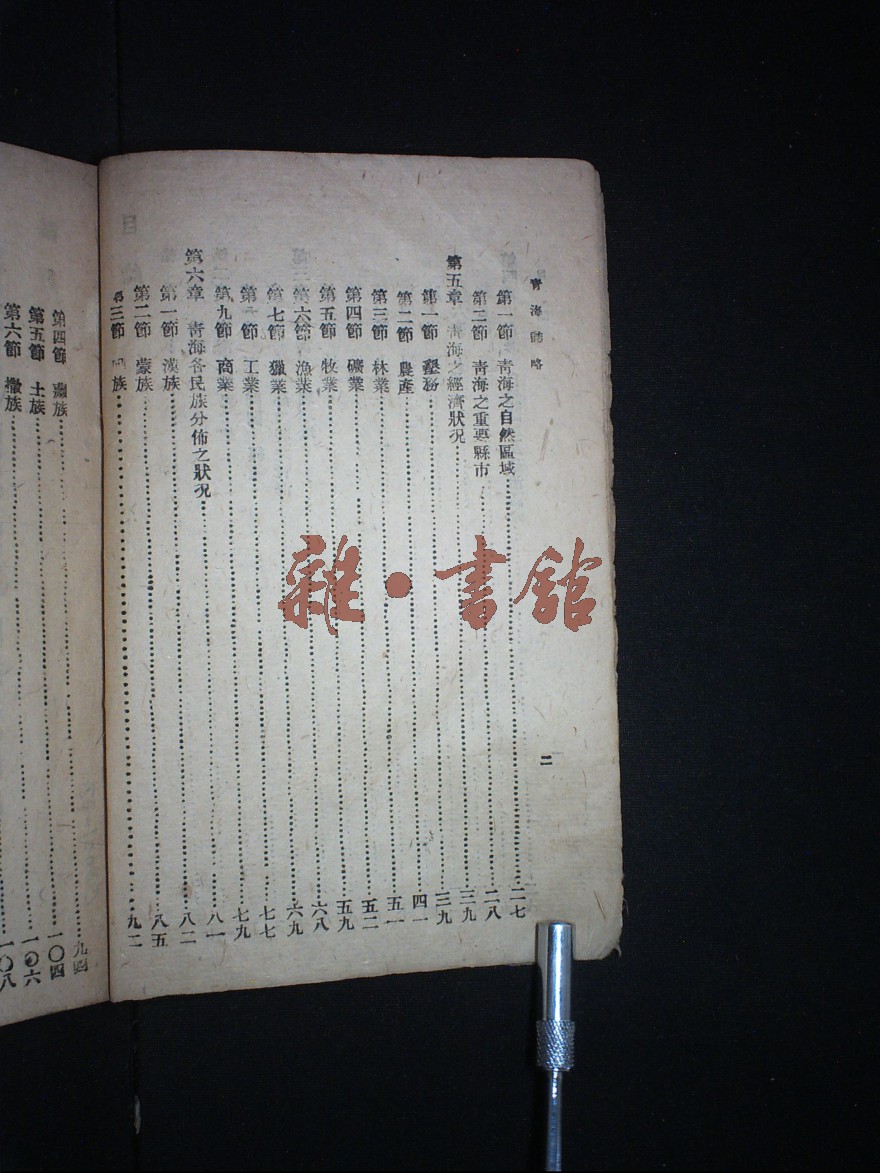 青海誌略
二
第一節 青海之自然區域……二七
第二節 青海之重要縣市……二八
第五章 青海之經濟狀況……三九
第一節 墾務……三九
第二節 農產……四一
第三節 林業……五一
第四節 礦業……五二
第五節 牧業……五九
第六節 漁業……六八
第七節 獵業……六九
第八節 工業……七七
第九節 商業……七九
第六章 青海各民族分佈之狀況……八一
第一節 漢族……八二
第二節 蒙族……八五
第三節 回族……九二
第四節 藏族……九四
第五節 土族……一〇四
第六節 撒族……一〇六
一〇八
雜·書館